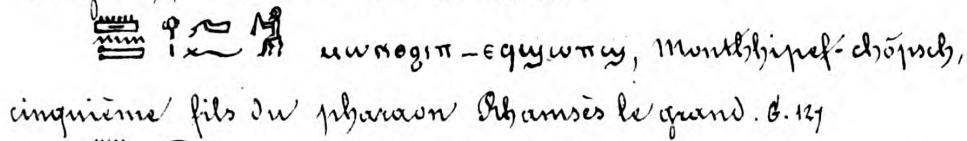 ⲙⲱⲛⲑϩⲓⲡ-ⲉϥϣⲱⲡϣ, Monthhipef-chôpsch,
cinquième fils du pharaon Rhamsès le grand. G. 127